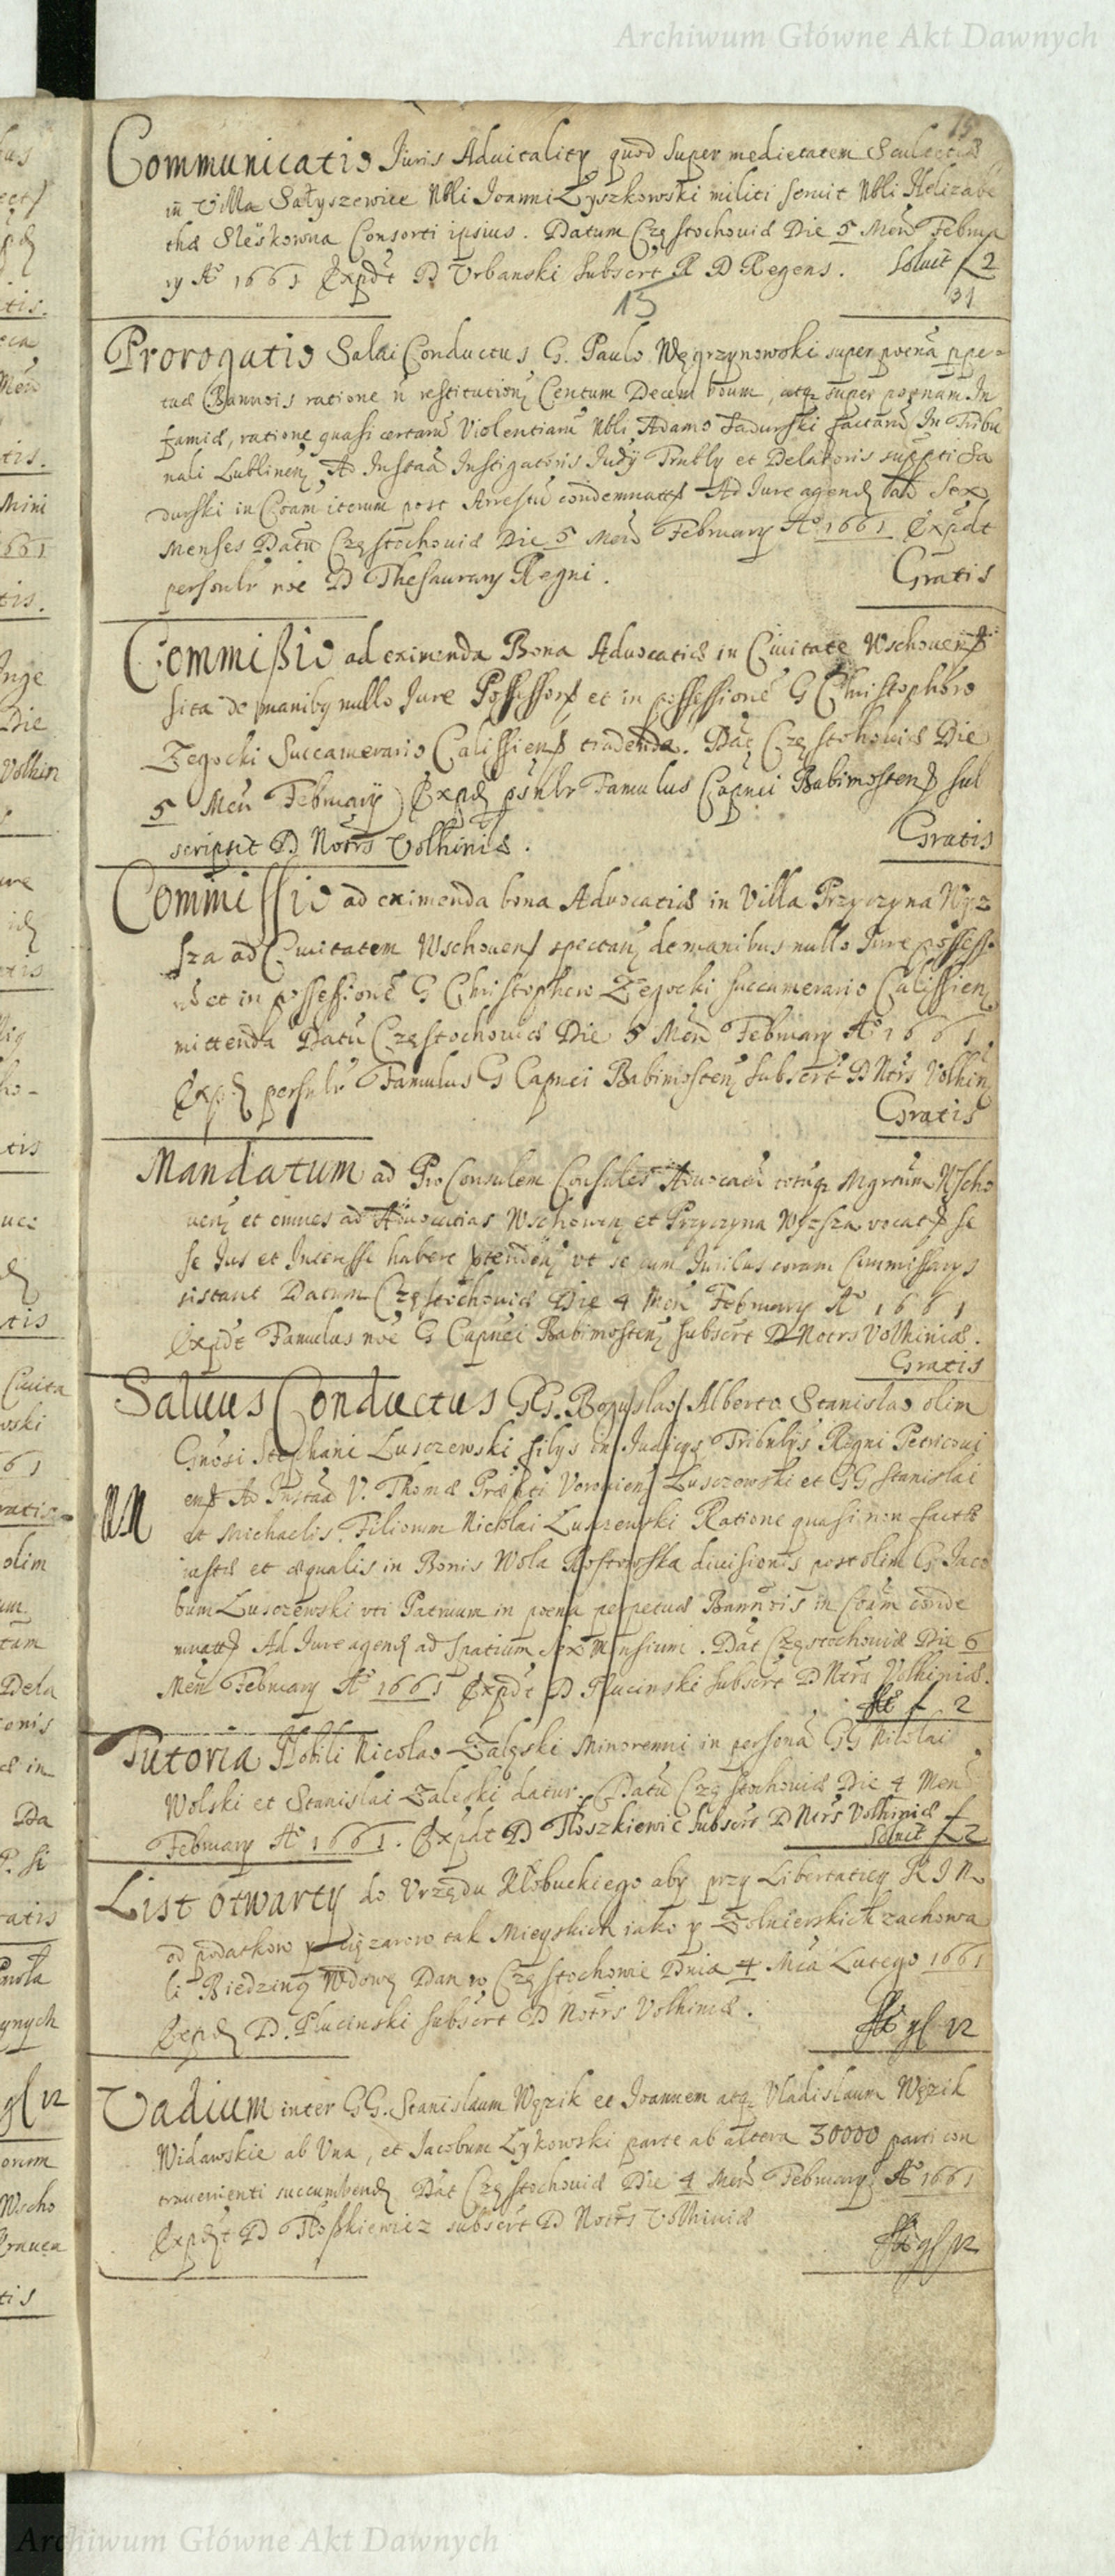 Archiwum Główne Akt Dawnych
15
Communicatio Juris Aduitality quod super medietatem Scultetiæ
in Villa Sałyszewice Nbli Joanni Łyszkowski militi seruit Nbli Helizabe
thæ Sleskowna Consorti ipsius. Datum Częstochouiæ Die 5 Men̄ Februa
ry A° 1661 Expdt D Vrbanski Subscrt R D Regens. Soluit f 2
15
31
Prorogatio Salui Conductus G. Paulo Węgrzynowski super poena ppe=
tuæ Bannois ratione n̄ restitutionis Centum Decem boum, atq super poenam In
famiæ, ratione quasi certarū Violentiarū Nbli Adamo Sadurski factarū In Tribu
nali Lublinen Ad Instaā Instigatoris Judy Trnbly et Delatoris supti Sa
durski in Coām iterum post Arrestū condemnats Ad Iure agend ad Sex
Menses Datū Częstochouiæ Die 5 Men̄ February A° 1661 Expdt
persnlr noe D Thesaurary Regni. Gratis
Commißio ad eximenda Bona Aduocatiæ in Ciuitate Wschouens
sita de maniby nullo Jure Possessors et in possessionē G Christophoro
Zegocki Succamerario Calissiens tradenda. Dat Częstochouiæ Die
5 Men̄ February Expd psnlr Famulus Capnei Babimostens sub
scripsit D Notrs Volhiniæ. Gratis
Commissio ad eximenda bona Aduocatiæ in Villa Przyczyna Wyz
sza ad Ciuitatem Wschouens spectan de manibus nullo Jure possesso
rū et in possessionē G Christophoro Zegocki succamerario Calissien
mittenda Datū Częstochouiæ Die 5 Men̄ February A° 1661
Expd persnlr Famulus G Capnei Babimosten Subscrt D Ntrs Volhin
Gratis
Mandatum ad ProConsulem Consules Aduocatū totūq Mgratum Wscho
uen et omnes ad Aduocatias Wschowen et Przyczyna Wyzsza vocats se
se Jus et Interesse habere ptenden vt se cum Juribus coram Commissarys
sistant Datum Częstochouiæ Die 4 Men̄ February A° 1661
Expdt Famulus noe G Capnei Babimosten subscrt D Notrs Volhiniæ.
Gratis
Saluus Conductus GG. Boguslao Alberto Stanislao olim
Gnosi Stephani Luszczewski filys in Judicys Tribnlys Regni Petricoui
ens Ad Instaā V. Thomæ Luszczewski et GG Stanislai
NN et Michaelis Filiorum Nicolai Luszczewski Ratione quasi non factæ
iustæ et æqualis in Bonis Wola diuisionis post olim G Jaco
bum Luszczewski vti Patruum in poena perpetuæ Bannois in Coām conde
mnats Ad Iure agend ad spatium sex Mensium. Dat Częstochouiæ Die 6
Men̄ February A° 1661 Expdt D Plucinski subscrt D Ntrs Volhiniæ.
f 2
Tutoria Nobili Nicolao Zalęski Minorenni in persona GG Nicolai
Wolski et Stanislai Zaleski datur. Datū Częstochouiæ Die 4 Men̄
February A° 1661. Expdt D Tłoszkiewic Subscrt D Ntrs Volhiniæ
Soluit f 2
List otwarty do Vrzędu Kłobuckiego aby przy Libertaticy K J M
od podatkow y cięzarow tak Mieyskich iako y Zołnierskich zachowa
li Biedziną Wdowę Dan w Częstochowie Dnia 4 Mca Lutego 1661
Expd D. Plucinski subscrt D Notrs Volhiniæ.
gł 12
Vadium inter GG. Stanislaum Węzik et Joannem atq Vladislaum Węzik
Widawskie ab Vna, et Jacobum Łykowski parte ab altera 30000 parti con
trauenienti succumbend Dat Częstochouiæ Die 4 Men̄ February A° 1661
Expdt D Tłoßkiewicz subscrt D Notrs Volhiniæ
gł 12
Archiwum Główne Akt Dawnych